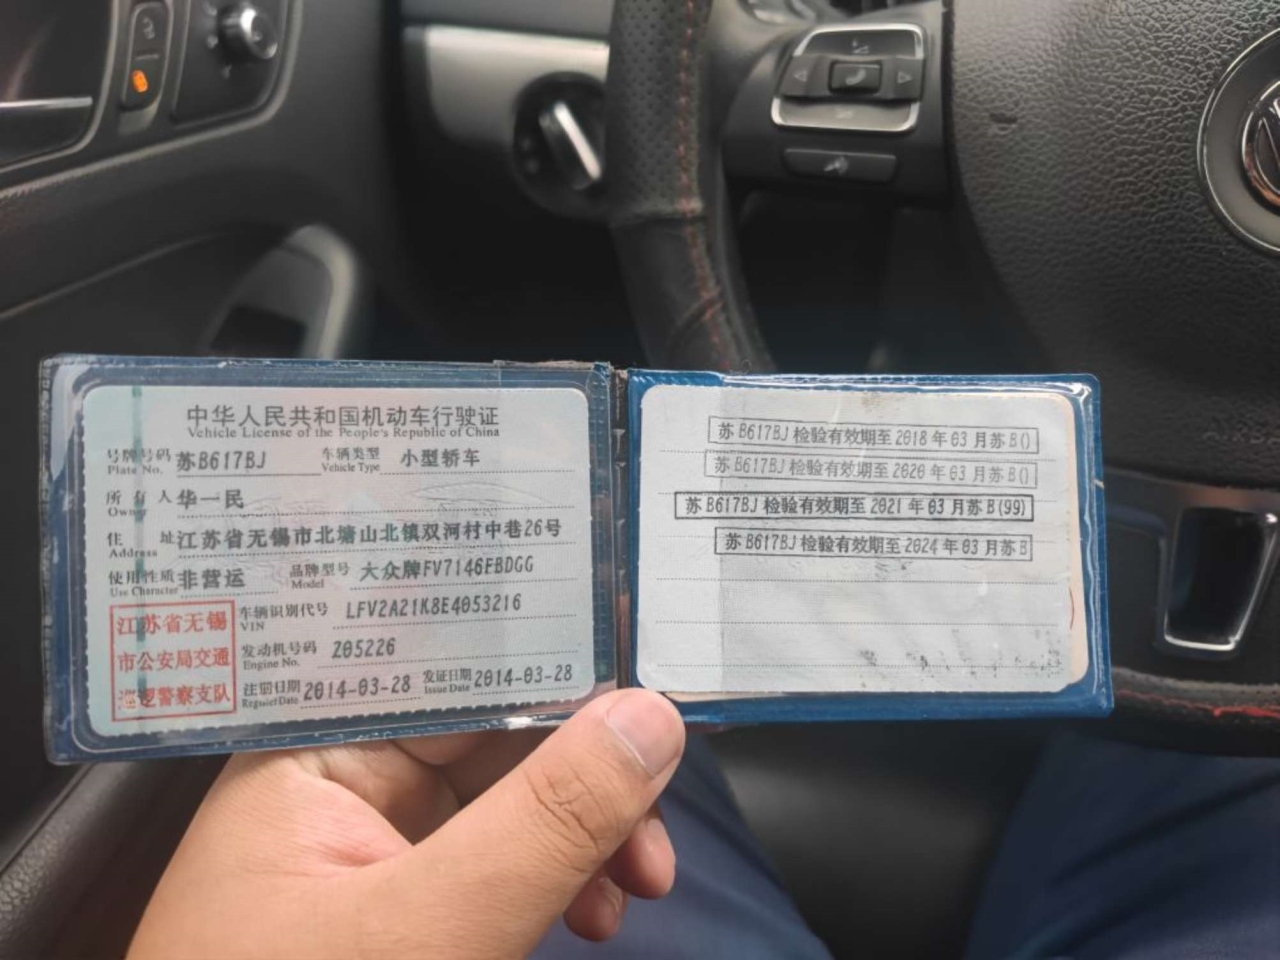 中华人民共和国机动车行驶证
Vehicle License of the People's Republic of China
号牌号码 苏B617BJ 车辆类型 小型轿车
Plate No. Vehicle Type
所有人 华一民
Owner
住址 江苏省无锡市北塘山北镇双河村中巷26号
Address
使用性质 非营运 品牌型号 大众牌FV7146FBDGG
Use Character Model
江苏省无锡
市公安局交通
巡逻警察支队
车辆识别代号 LFV2A21K8E4053216
VIN
发动机号码 Z05226
Engine No.
注册日期 2014-03-28 发证日期 2014-03-28
Register Date Issue Date
苏B617BJ检验有效期至2018年03月苏B()
苏B617BJ检验有效期至2020年03月苏B()
苏B617BJ检验有效期至2021年03月苏B(99)
苏B617BJ检验有效期至2024年03月苏B